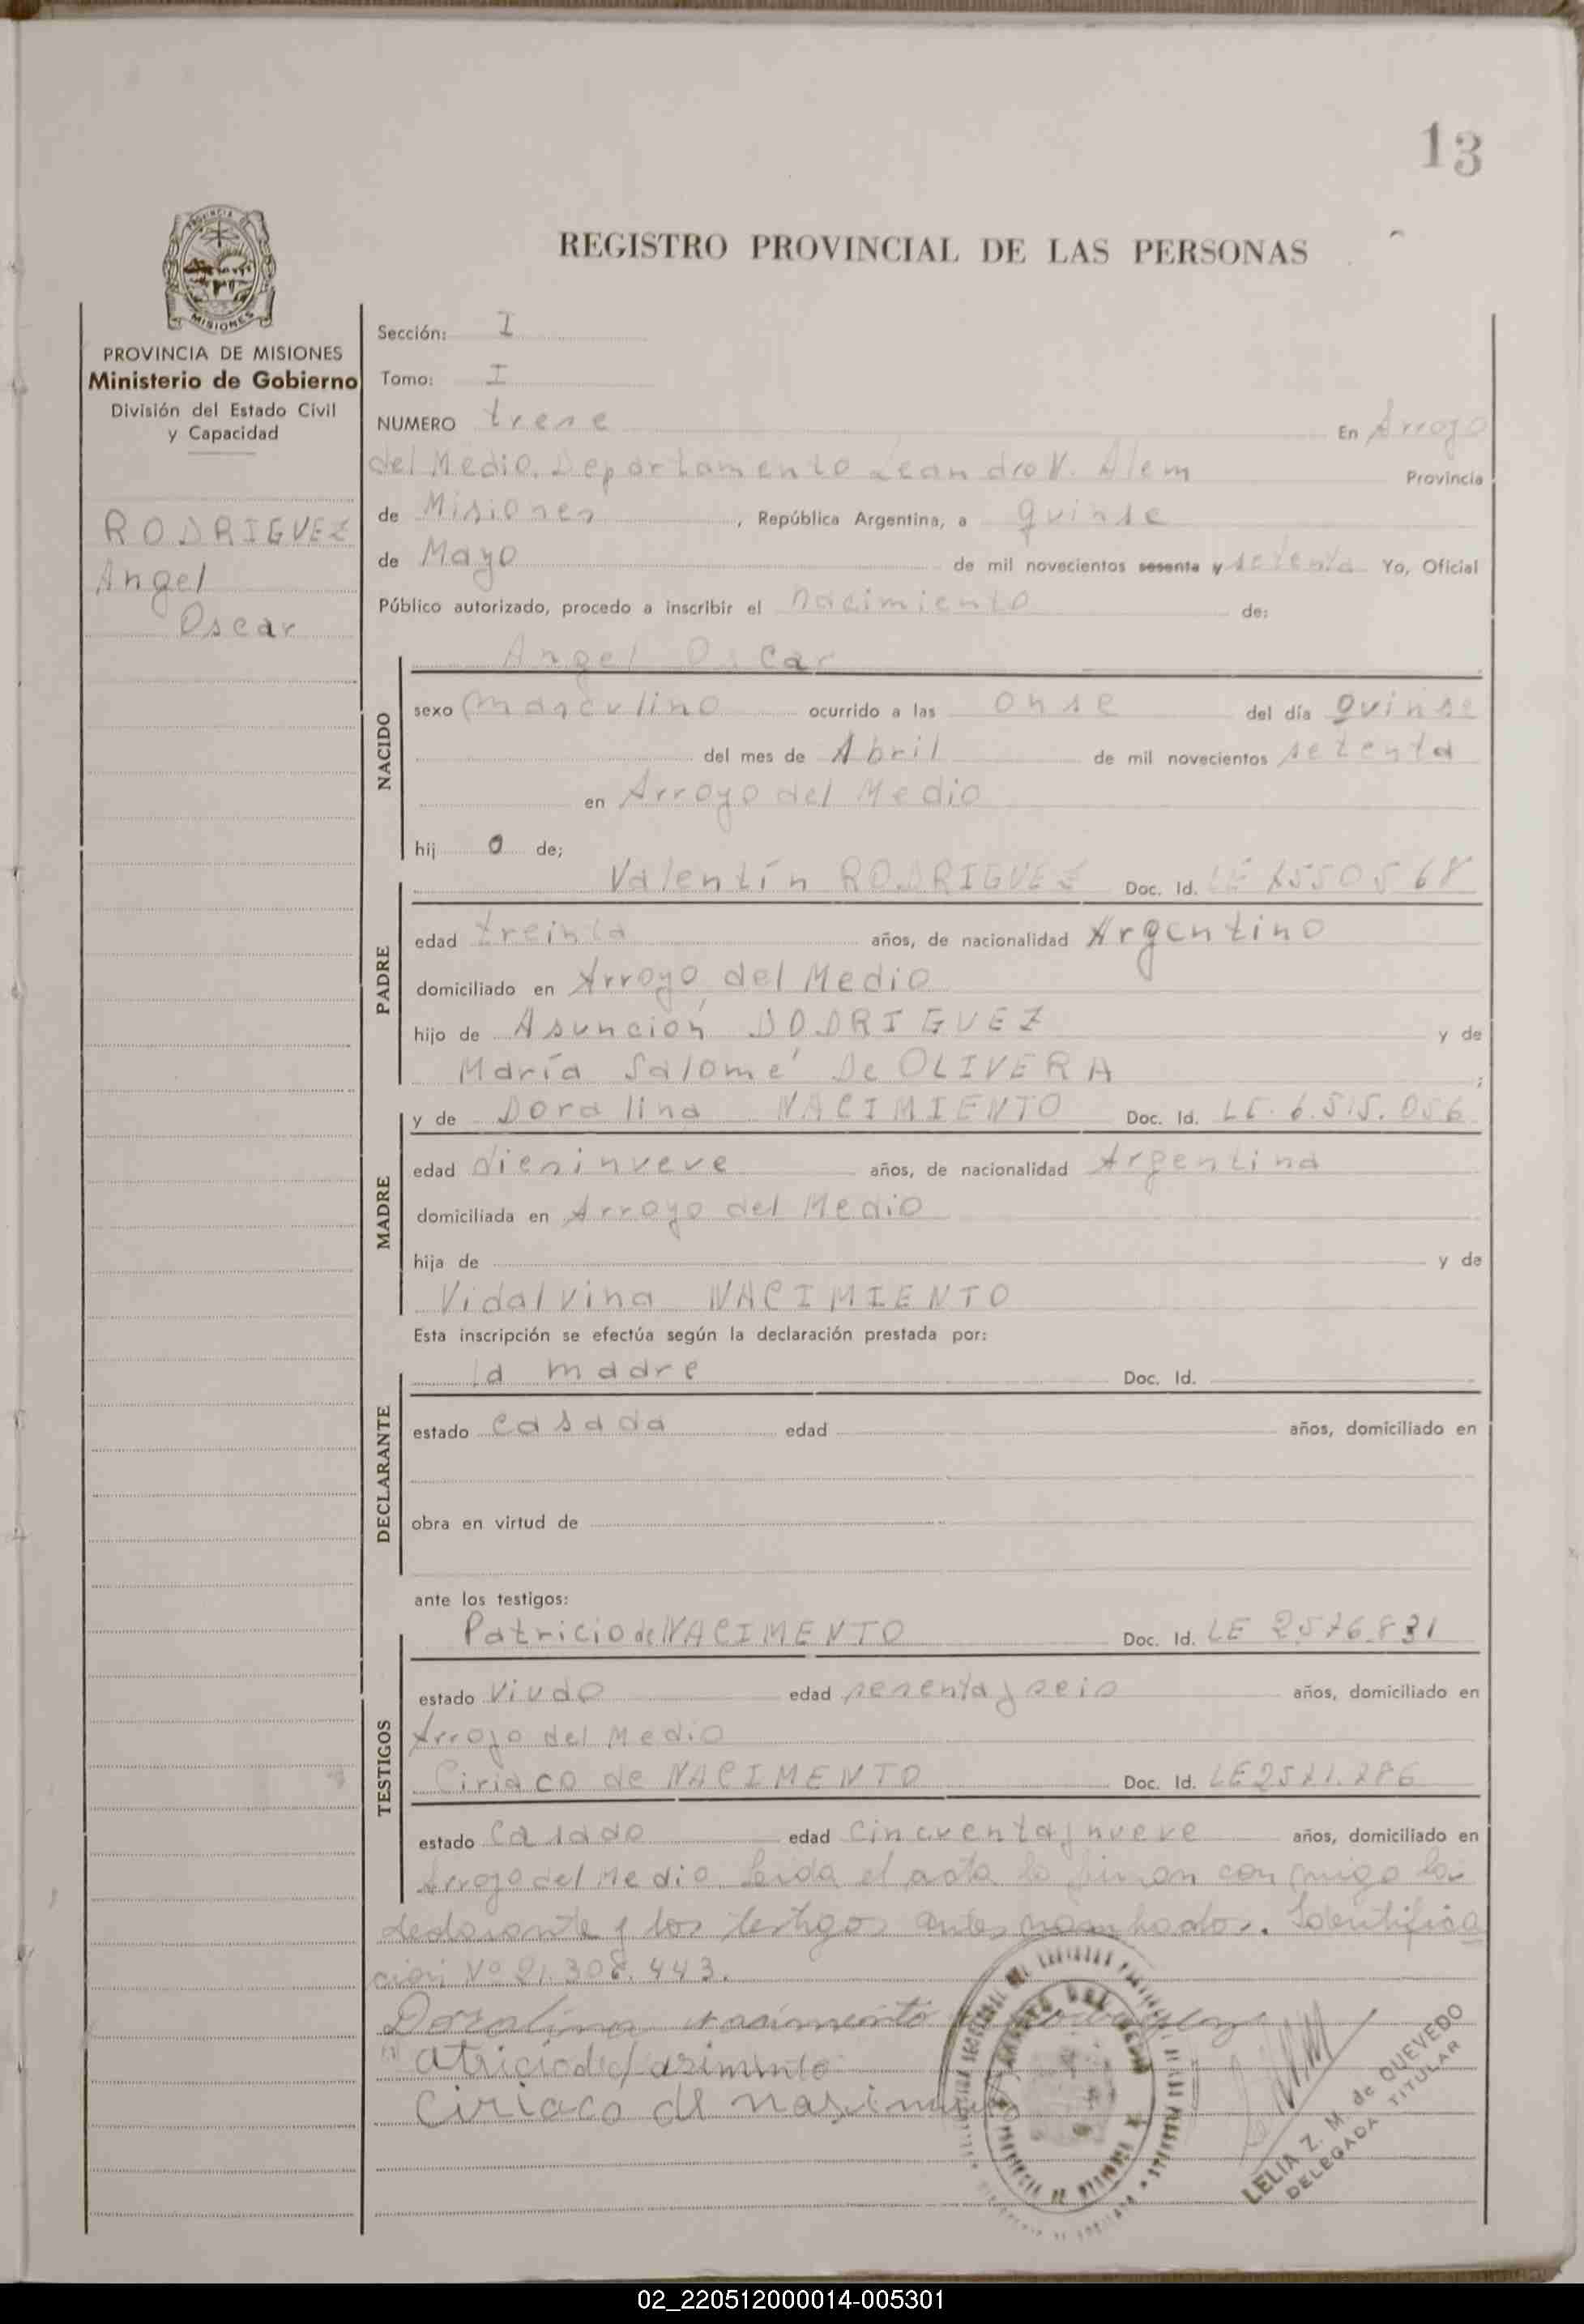 13
REGISTRO PROVINCIAL DE LAS PERSONAS
MISIONES
PROVINCIA DE MISIONES
Ministerio de Gobierno
División del Estado Civil
y Capacidad
RODRIGUEZ
Angel
Oscar
Sección: I
Tomo: I
NUMERO trese En Arroyo
del Medio. Departamento Leandro N. Alem Provincia
de Misiones, República Argentina, a quinse
de Mayo de mil novecientos sesenta y setenta Yo, Oficial
Público autorizado, procedo a inscribir el nacimiento de:
NACIDO
Angel Oscar
sexo masculino ocurrido a las onse del día quinse
del mes de Abril de mil novecientos setenta
en Arroyo del Medio
hij o de;
PADRE
Valentín RODRIGUEZ Doc. Id. LE
edad treinta años, de nacionalidad Argentino
domiciliado en Arroyo del Medio
hijo de Asunción RODRIGUEZ y de
María Salomé De OLIVERA ;
MADRE
y de Doralina NACIMIENTO Doc. Id. LE. 6.515.056
edad diesinueve años, de nacionalidad Argentina
domiciliada en Arroyo del Medio
hija de y de
Vidalvina NACIMIENTO
Esta inscripción se efectúa según la declaración prestada por:
DECLARANTE
la madre Doc. Id.
estado casada edad años, domiciliado en
obra en virtud de
ante los testigos:
TESTIGOS
Patricio de NACIMENTO Doc. Id. LE 2576.831
estado viudo edad sesenta y seis años, domiciliado en
Arroyo del Medio
Ciriaco de NACIMENTO Doc. Id. LE
estado Casado edad cincuenta y nueve años, domiciliado en
Arroyo del Medio. Leida el acta la firman conmigo la
declarante y los testigos antes nombrados. Identifica
ción Nº 21.308.443.
Doralina nacimiento
Ciriaco de nasimento
LELIA Z. M. de QUEVEDO
DELEGADA TITULAR
02_220512000014-005301